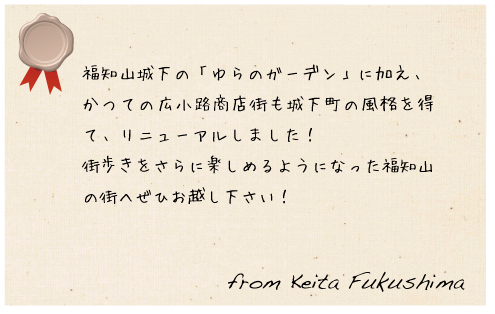 福知山城下の「ゆらのガーデン」に加え、
かつての広小路商店街も城下町の風格を得
て、リニューアルしました！
街歩きをさらに楽しめるようになった福知山
の街へぜひお越し下さい！
from Keita Fukushima